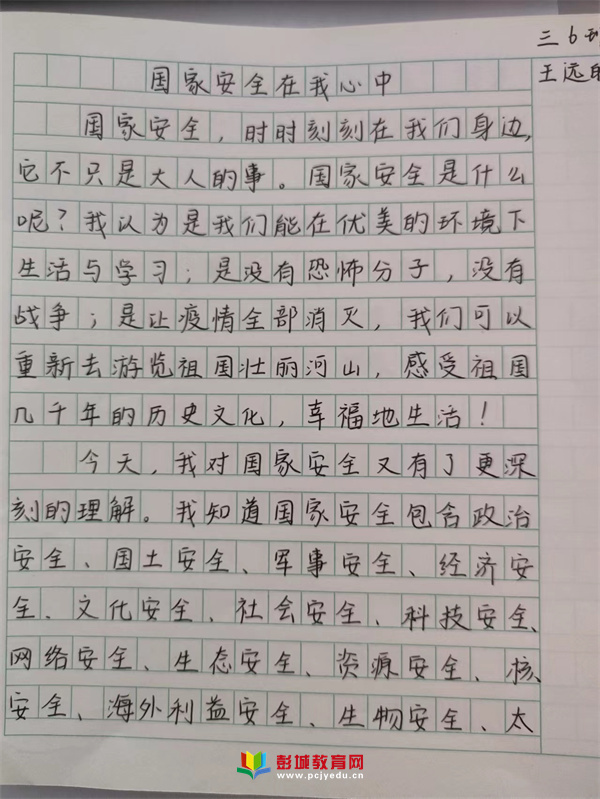 三6
王远
国家安全在我心中
国家安全，时时刻刻在我们身边，
它不只是大人的事。国家安全是什么
呢？我认为是我们能在优美的环境下
生活与学习；是没有恐怖分子，没有
战争；是让疫情全部消灭，我们可以
重新去游览祖国壮丽河山，感受祖国
几千年的历史文化，幸福地生活！
今天，我对国家安全又有了更深
刻的理解。我知道国家安全包含政治
安全、国土安全、军事安全、经济安
全、文化安全、社会安全、科技安全、
网络安全、生态安全、资源安全、核
安全、海外利益安全、生物安全、太
彭城教育网
www.pcjyedu.cn